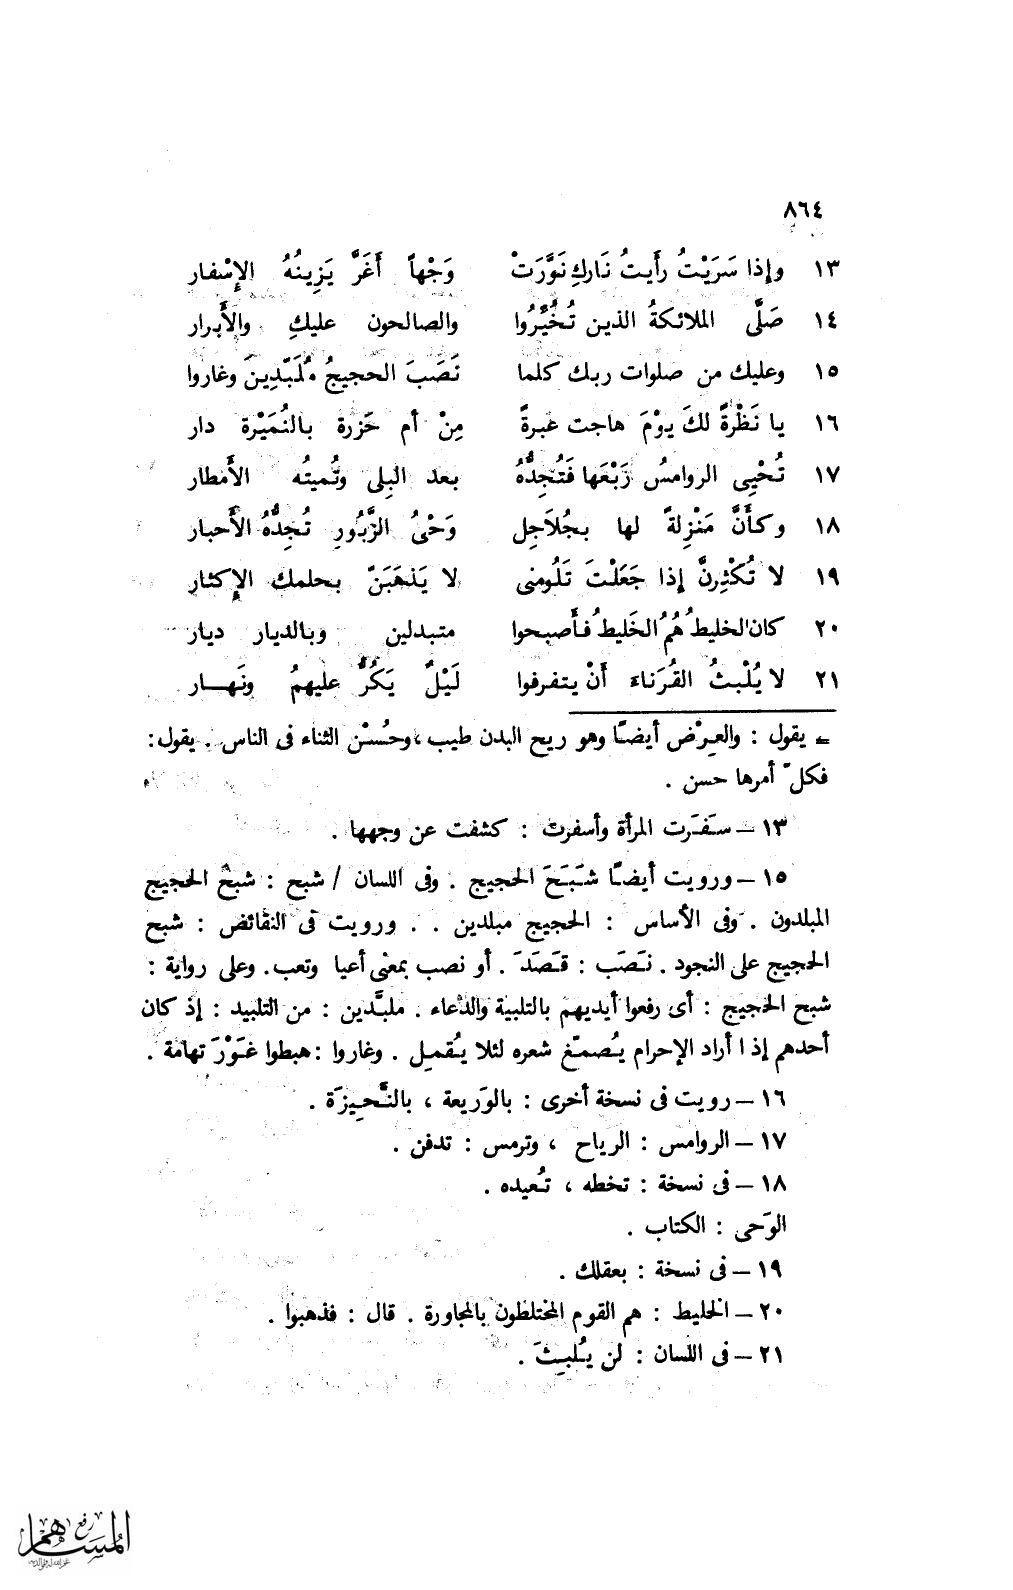 ٨٦٤
١٣ وإذا سَرَيْتُ رأَيتُ نَارَكِ نَوَّرَتْ وَجْهاً أَغَرَّ يَزِينُهُ الإِسْفار
١٤ صَلَّى الملائكةُ الذين تُخُيِّرُوا والصالحون عليكِ والأَبرار
١٥ وعليك من صلوات ربك كلما نَصَبَ الحجيجُ مُلَبِّدِينَ وغاروا
١٦ يا نَظْرَةً لكَ يوْمَ هاجت عَبرةً مِنْ أم حَزرة بالنُمَيْرة دار
١٧ تُحْيِى الروامسُ رَبْعَها فَتُجِدُّهُ بعد البِلى وتُميتُه الأَمطار
١٨ وكأَنَّ مَنْزِلةً لها بجُلاَجِل وَحْىُ الزَّبُورِ تُجِدُّهُ الأَحبار
١٩ لا تُكْثِرنَّ إِذا جَعَلْتَ تَلُومنى لا يَذهَبَنّ بحلمك الإِكثار
٢٠ كان الخليطُ هُمُ الخَليطُ فأَصبحوا متبدلين وبالديار ديار
٢١ لا يُلْبثُ القُرَناءَ أَنْ يتفرقوا لَيْلٌ يَكُرُّ عليهمُ ونَهــار
= يقول : والعِرْض أيضًا وهو ريح البدن طيب ، وحُسْن الثناء فى الناس . يقول :
فكلّ أمرها حسن .
١٣ – سَفَرَت المرأة وأسفرت : كشفت عن وجهها .
١٥ – ورويت أيضًا شَبَحَ الحجيج . وفى اللسان / شبح : شبح الحجيج
المبلدون . وفى الأساس : الحجيج مبلدين . . ورويت فى النقائض : شبح
الحجيج على النجود . نَصَب : قَصَدَ . أو نصب بمعنى أعيا وتعب . وعلى رواية :
شبح الحجيج : أى رفعوا أيديهم بالتلبية والدعاء . ملبَّدين : من التلبيد : إذ كان
أحدهم إذا أراد الإحرام يُصمّغ شعره لئلا يُقمل . وغاروا : هبطوا غَوْرَ تهامة .
١٦ – رويت فى نسخة أخرى : بالوَريعة ، بالنَّحِيزَة .
١٧ – الروامس : الرياح ، وترمس : تدفن .
١٨ – فى نسخة : تخطه ، تُعيده .
الوَحى : الكتاب .
١٩ – فى نسخة : بعقلك .
٢٠ – الخليط : هم القوم المختلطون بالمجاورة . قال : فذهبوا .
٢١ – فى اللسان : لن يُلبِثَ .
رفع
المساهم